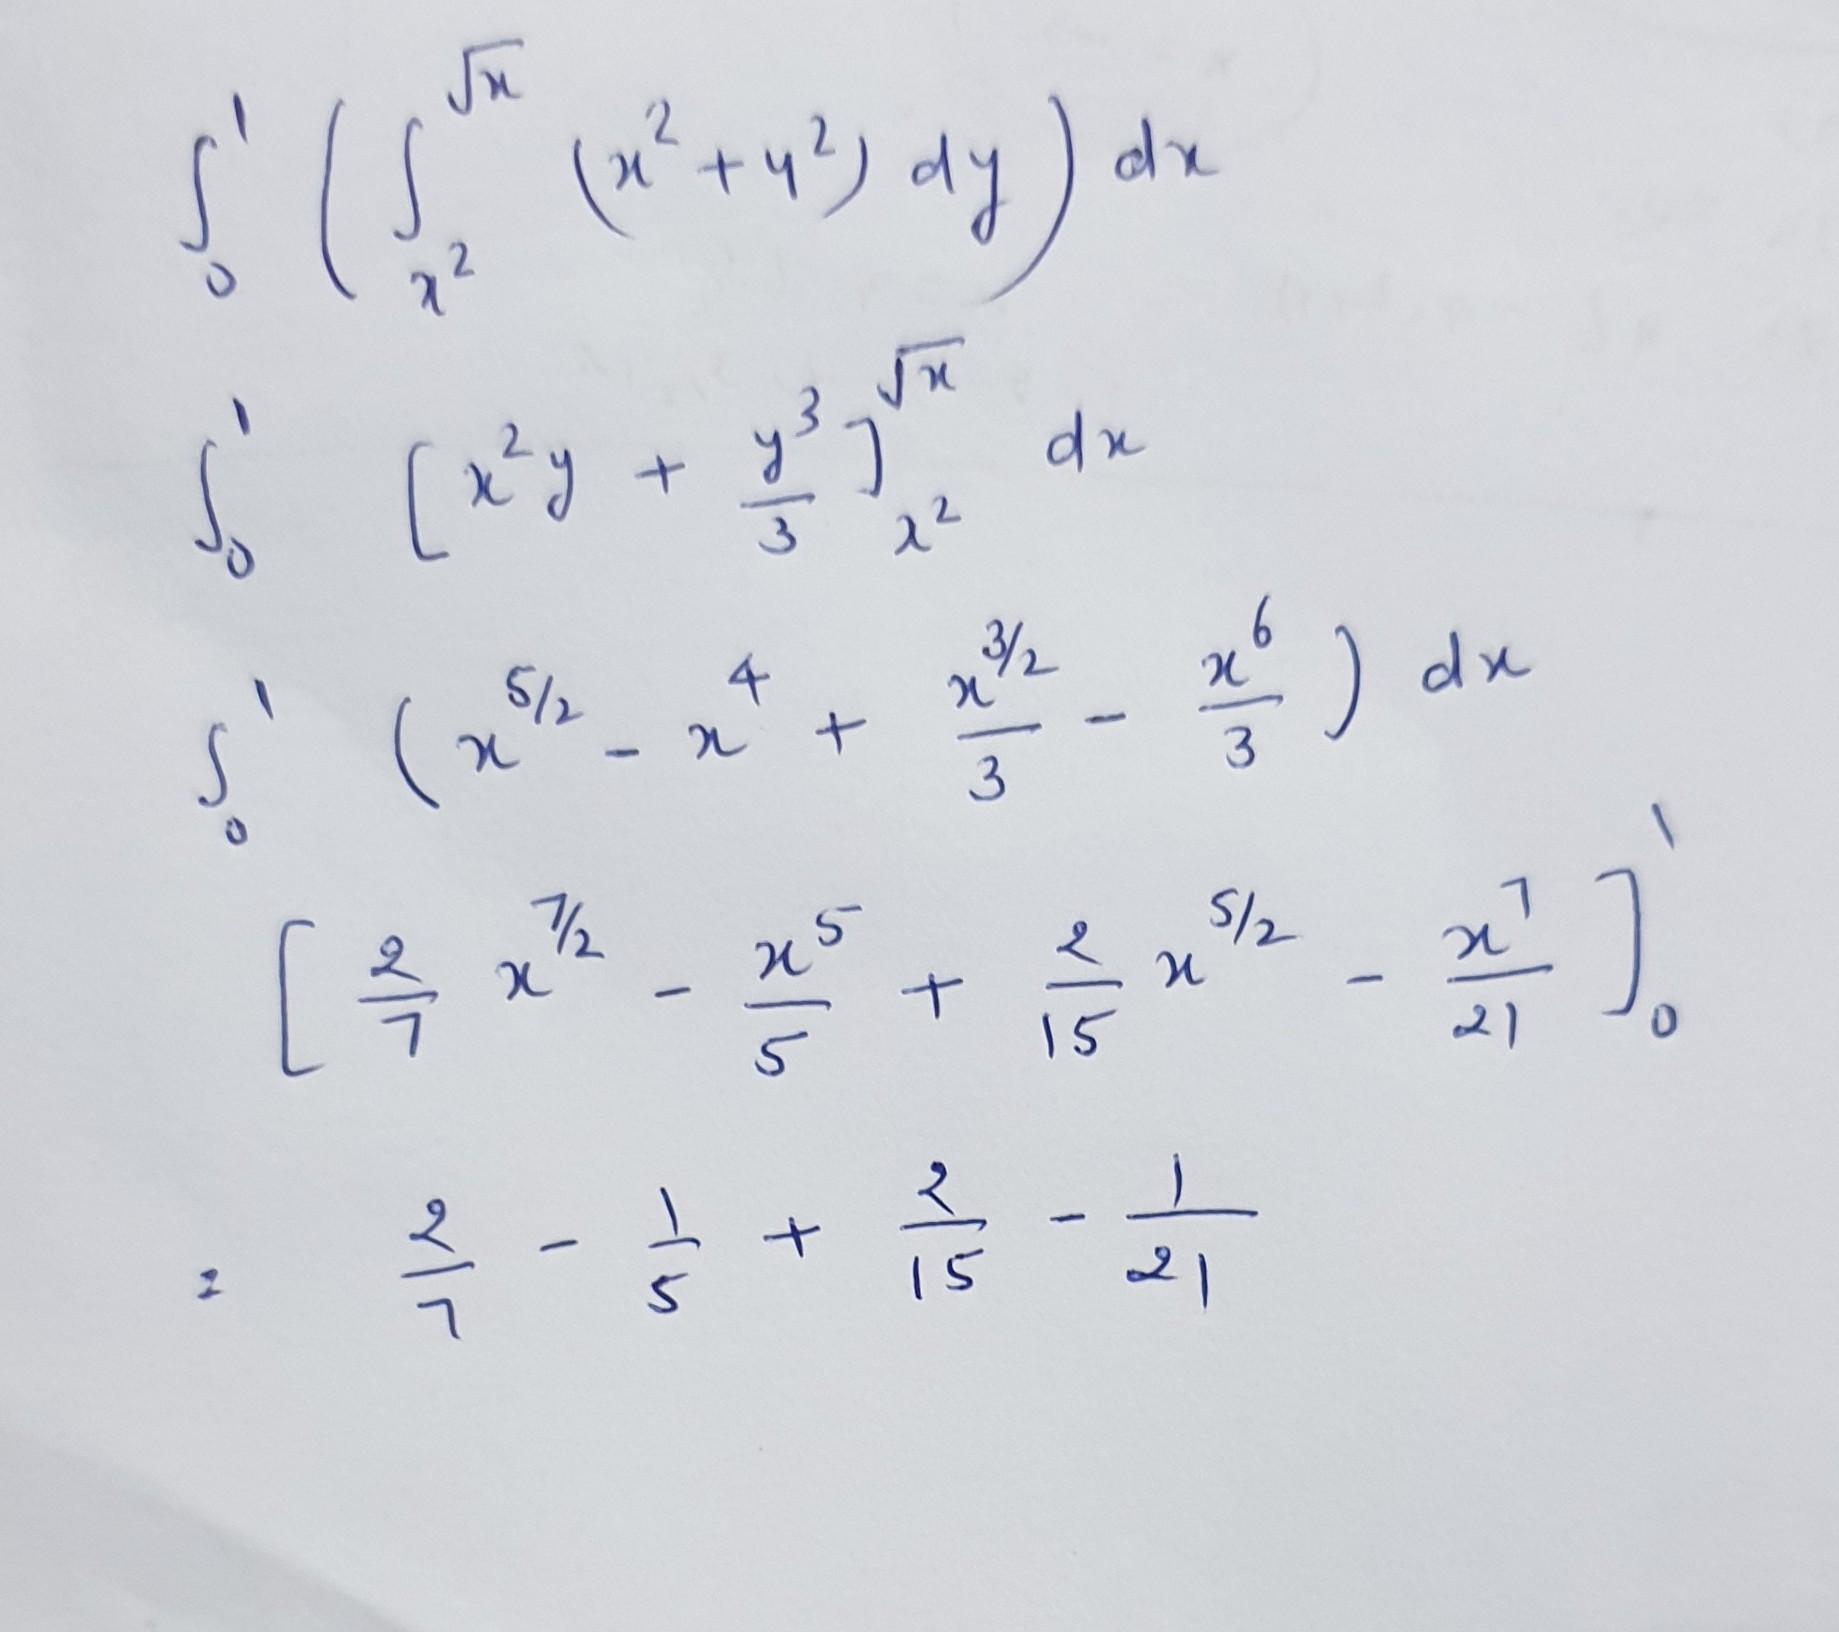 ∫₀¹ ( ∫_{x²}^{√x} (x² + y²) dy ) dx
∫₀¹ [ x²y + y³/3 ]_{x²}^{√x} dx
∫₀¹ ( x^{5/2} - x⁴ + x^{3/2}/3 - x⁶/3 ) dx
[ 2/7 x^{7/2} - x⁵/5 + 2/15 x^{5/2} - x⁷/21 ]₀¹
= 2/7 - 1/5 + 2/15 - 1/21